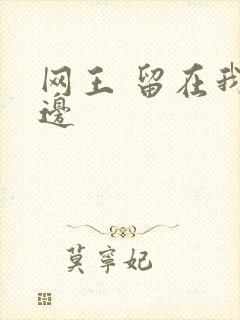 网王 留在我
邊
莫寧妃